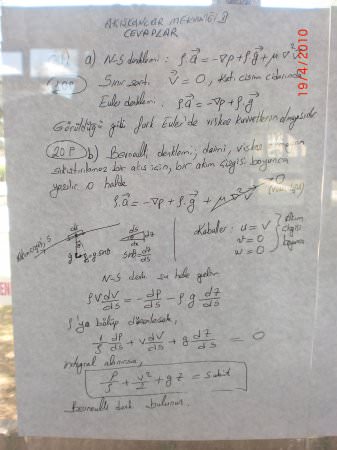 AKIŞKANLAR MEKANİĞİ
CEVAPLAR
a) N-S denklemi : ρ.a⃗ = -∇p + ρg⃗ + μ∇²
Sınır şartı V⃗ = 0, katı cisim cidarında
Euler denklemi ρ.a⃗ = -∇p + ρ.g⃗
Görüldüğü gibi fark Euler'de viskoz kuvvetlerin olmayışıdır
20P b) Bernoulli denklemi, daimi,
sıkıştırılamaz bir akış için, bir akım çizgisi boyunca
yazılır. O halde
ρ.a⃗ = -∇p + ρ.g⃗ + μ∇²V⃗ 0
Akım çizgisi, S
ds
dz
g
g sinθ
ds
dz
sinθ = dz/ds
Kabuller : u = V
v = 0
w = 0
Akım
çizgisi
boyunca
N-S denk. şu hale gelir
ρV dV/ds = - dp/ds - ρ g dz/ds
ρ'ya bölüp düzenlersek,
1/ρ dp/ds + V dV/ds + g dz/ds = 0
integral alınırsa,
p/ρ + V²/2 + g z = sabit
Bernoulli denk. bulunur.
19/4/2010